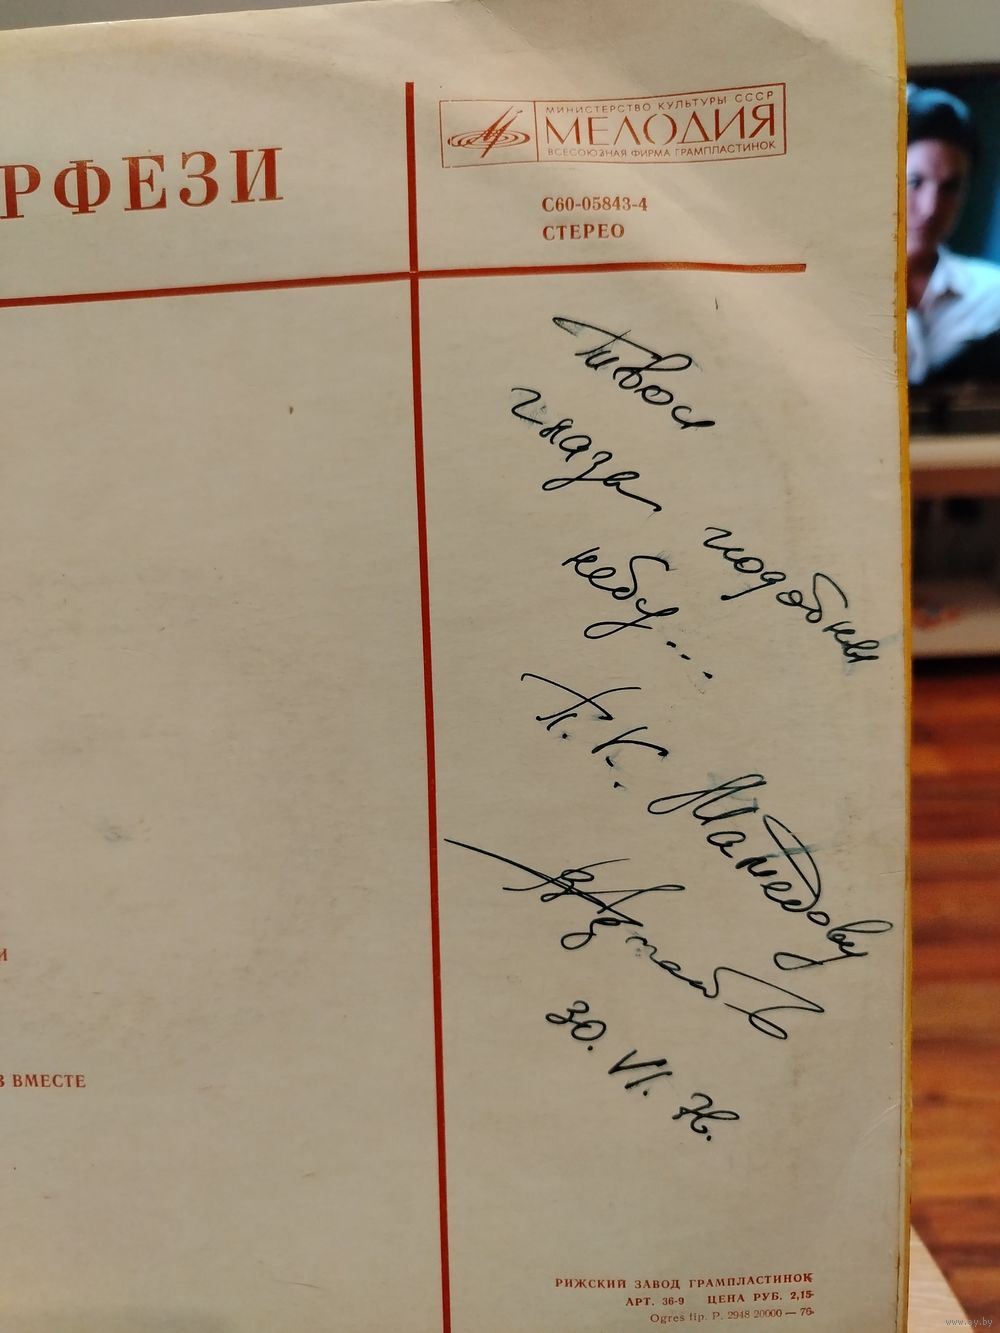 РФЕЗИ
МИНИСТЕРСТВО КУЛЬТУРЫ СССР
МЕЛОДИЯ
ВСЕСОЮЗНАЯ ФИРМА ГРАМПЛАСТИНОК
С60-05843-4
СТЕРЕО
твои
глаза
подобны
небу...
П. К. Мамедову
30. VI. 76.
И
З ВМЕСТЕ
РИЖСКИЙ ЗАВОД ГРАМПЛАСТИНОК
АРТ. 36-9 ЦЕНА РУБ. 2,15
Ogres tip. P. 2948 20000 — 76
www.ay.by